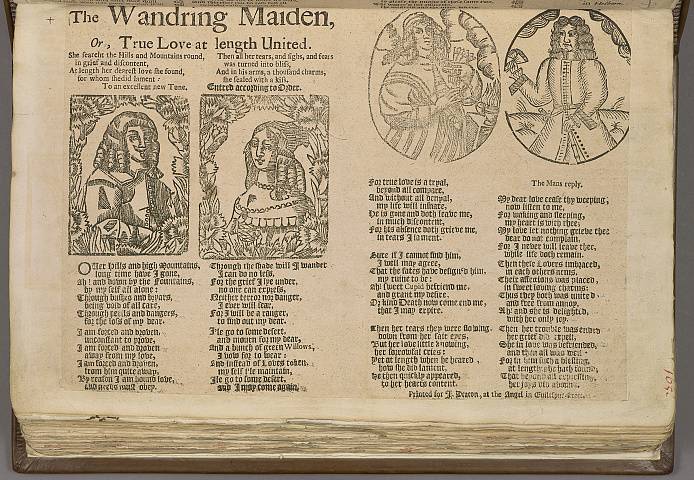 The Wandring Maiden,
Or, True Love at length United.
She searcht the Hills and Mountains round,
in grief and discontent,
At length her dearest love she found,
for whom she did lament:
To an excellent new Tune.
Then all her tears, and sighs, and fears
was turned into bliss,
And in his arms, a thousand charms,
she sealed with a kiss.
Entered according to Order.
OVer Hills and high Mountains,
long time have I gone,
Ah! and down by the Fountains,
by my self all alone:
Through bushes and bryars,
being void of all care,
Through perils and dangers,
for the loss of my dear.
I am forced and
unconstant to prove,
I am forced and
away from my love,
I am forced and
from him quite away,
By reason I am bound love,
and needs must obey.
Through the shade will I wander
I can do no less,
For the grief I lye under,
no one can express,
Neither terror nor danger,
I ever will fear,
For I will be a ranger,
to find out my dear.
Ile go to some desert,
and mourn for my dear,
And a bunch of green Willows,
I vow for to wear:
And instead of Loves token,
my self i'le maintain,
Ile go to some desert,
and I may come again.
For true love is a tryal,
beyond all compare,
And without all denyal,
my life will insnare,
He is gone and doth leave me,
in much discontent,
For his absence doth grieve me,
in tears I lament.
Sure if I cannot find him,
I will may agree,
That the fates have designd him,
my ruine to be:
Ah! sweet Cupid befriend me,
and grant my desire,
Or kind Death now come end me,
that I may expire.
Then her tears they were flowing,
down from her fair eyes,
But her love little knowing,
her sorrowful cries:
Yet at length when he heared,
how she did lament,
He then quickly appeared,
to her hearts content.
The Mans reply.
My dear love cease thy weeping,
now listen to me,
For waking and sleeping,
my heart is with thee;
My love let nothing grieve thee
dear do not complain,
For I never will leave thee,
while life doth remain.
Then these Lovers imbraced,
in each others arms,
Their affections was placed,
in sweet loving charms:
Thus they both was united
and free from annoy,
Ah! and she is delighted,
with her only joy.
Then her trouble was ended
her grief did expell,
She in love was befriended,
and then all was well
For in him such a blessing,
at length she hath found,
That beyond all expressing,
her joys
Printed for J. Deacon, at the Angel in
102